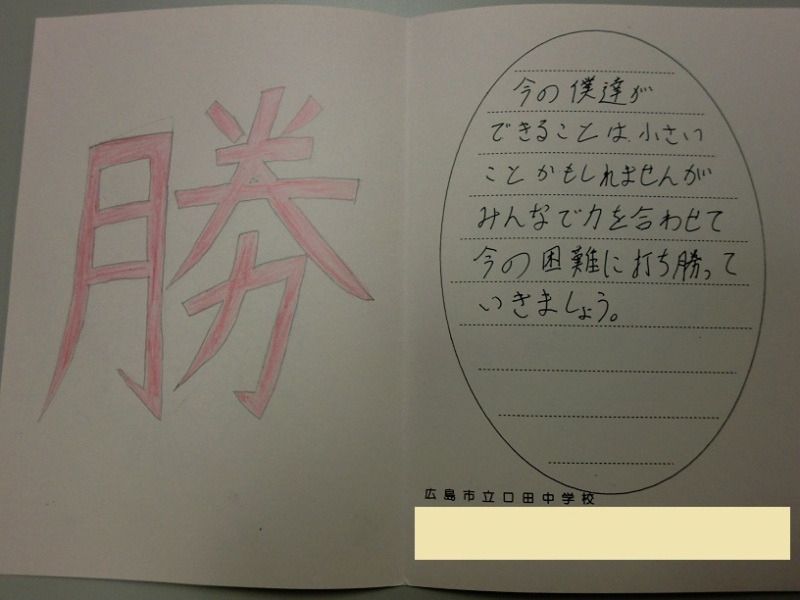 勝
今の僕達が
できることは、小さい
ことかもしれませんが
みんなで力を合わせて
今の困難に打ち勝って
いきましょう。
広島市立口田中学校